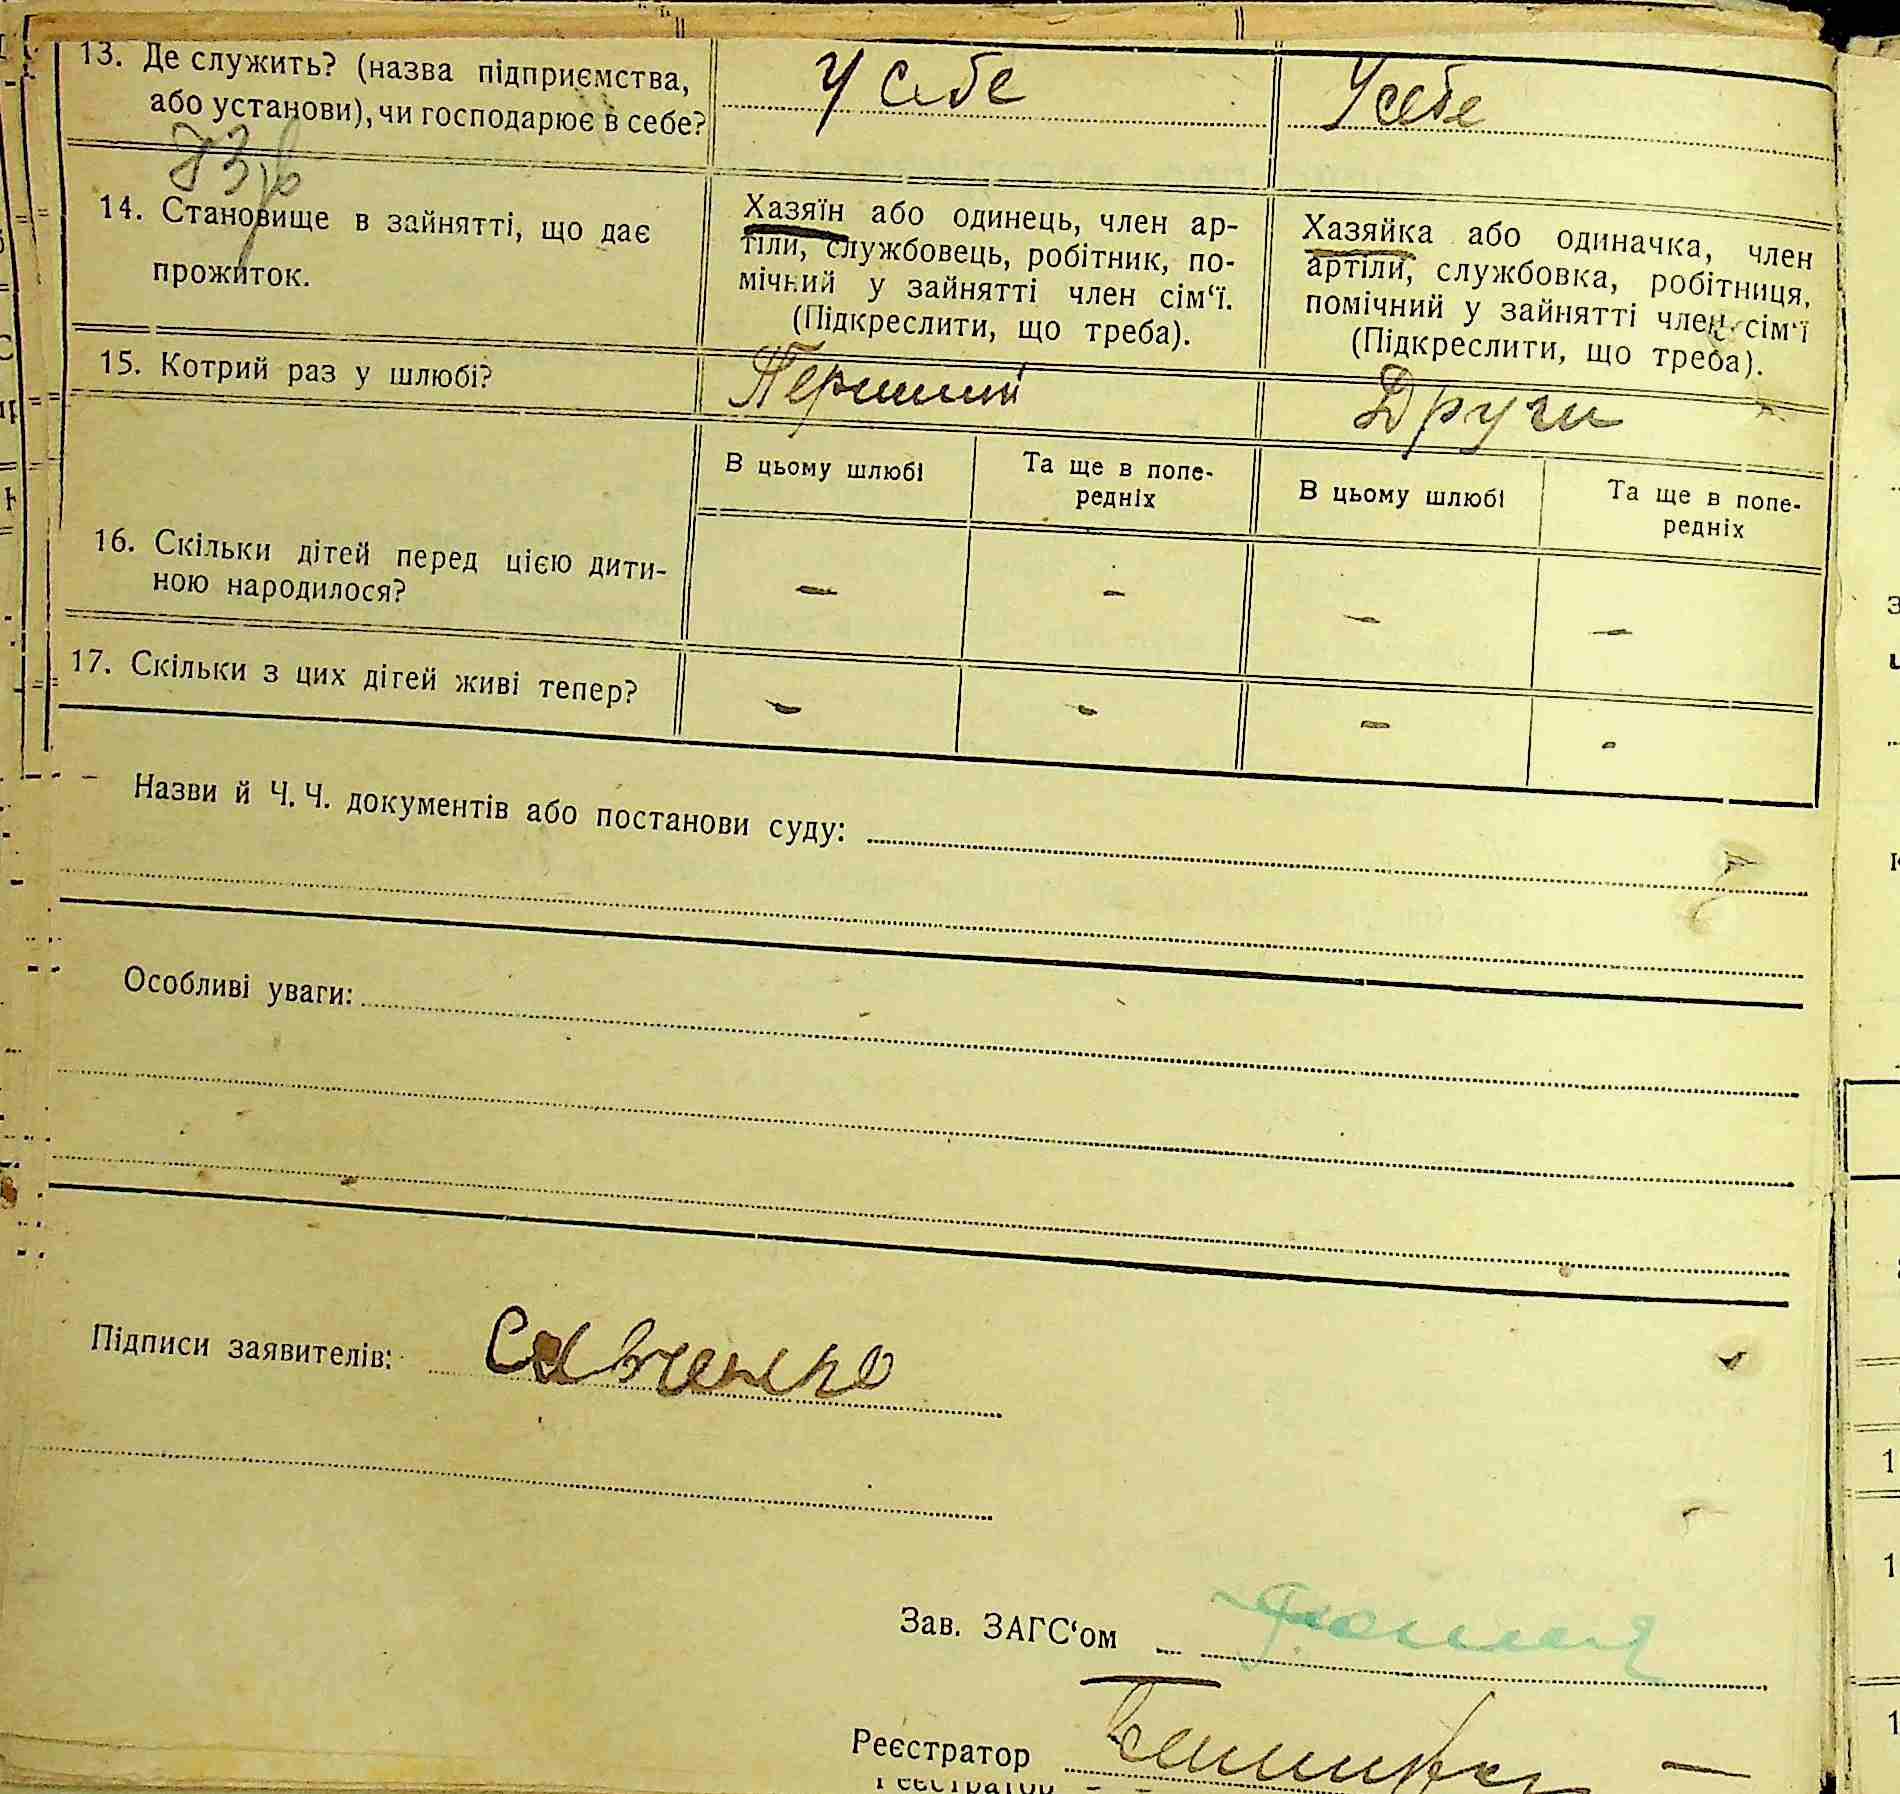 13. Де служить? (назва підприємства,
або установи), чи господарює в себе?
У себе
У себе
14. Становище в зайнятті, що дає
прожиток.
Хазяїн або одинець, член ар-
тіли, службовець, робітник, по-
мічний у зайнятті член сім‘ї.
(Підкреслити, що треба).
Хазяйка або одиначка, член
артіли, службовка, робітниця,
помічний у зайнятті член сім‘ї
(Підкреслити, що треба).
15. Котрий раз у шлюбі?
Перший
Други
В цьому шлюбі
Та ще в попе-
редніх
В цьому шлюбі
Та ще в попе-
редніх
16. Скільки дітей перед цією дити-
ною народилося?
– – – –
17. Скільки з цих дітей живі тепер?
– – – –
Назви й Ч. Ч. документів або постанови суду:
Особливі уваги:
Підписи заявителів: Савченко
Зав. ЗАГС‘ом
Реєстратор
Реєстратор